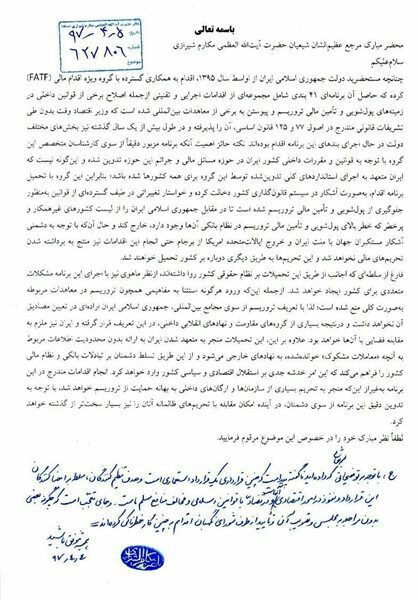 باسمه تعالی
۹۷-۴-۵
۶۲۷۸۰۶
محضر مبارک مرجع عظیم‌الشان شیعیان حضرت آیت‌الله العظمی مکارم شیرازی
سلام‌علیکم
چنانچه مستحضرید دولت جمهوری اسلامی ایران از اواسط سال ۱۳۹۵، اقدام به همکاری گسترده با گروه ویژه اقدام مالی (FATF)
کرده که حاصل آن برنامه‌ای ۴۱ بندی شامل مجموعه‌ای از اقدامات اجرایی و تقنینی ازجمله اصلاح برخی از قوانین داخلی در
زمینه‌های پول‌شویی و تأمین مالی تروریسم و پیوستن به برخی از معاهدات بین‌المللی شده است که وزیر اقتصاد وقت بدون طی
تشریفات قانونی مندرج در اصول ۷۷ و ۱۲۵ قانون اساسی، آن را پذیرفته و در طول بیش از یک سال گذشته نیز بخش‌های مختلف
دولت در حال اجرای بندهای این برنامه بوده‌اند. نکته حائز اهمیت آنکه برنامه مزبور دقیقاً از سوی کارشناسان متخصص این
گروه با توجه به قوانین و مقررات داخلی کشور ایران در حوزه مسائل مالی و جرائم این حوزه تدوین شده و این‌گونه نیست که
ایران متعهد به اجرای استانداردهای کلی تدوین‌شده توسط این گروه برای همه کشورها شده باشد؛ بنابراین این گروه با تحمیل
برنامه اقدام، به‌صورت آشکار در سیستم قانون‌گذاری کشور دخالت کرده و خواستار تغییراتی در طیف گسترده‌ای از قوانین به‌منظور
جلوگیری از پول‌شویی و تأمین مالی تروریسم شده است تا در مقابل جمهوری اسلامی ایران را از لیست کشورهای غیرهمکار و
پرخطر که خطر بالای پول‌شویی و تأمین مالی تروریسم در نظام بانکی آن‌ها وجود دارد، خارج کند و حال آن‌که با توجه به دشمنی
آشکار مستکبران جهان با ملت ایران و خروج ایالات‌متحده امریکا از برجام حتی انجام این اقدامات نیز منتج به برداشته شدن
تحریم‌های مالی نخواهد شد و این تحریم‌ها به طریق دیگری دوباره بر کشور تحمیل خواهند شد.
فارغ از سلطه‌ای که اجانب از طریق این تحمیلات بر نظام حقوقی کشور روا داشته‌اند، ازنظر ماهوی نیز با اجرای این برنامه مشکلات
متعددی برای کشور ایجاد خواهد شد. ازجمله این‌که ورود هرگونه استثنا به مفاهیمی همچون تروریسم در معاهدات مربوطه
به‌صورت کلی منع شده است؛ لذا با تعریف تروریسم از سوی مجامع بین‌المللی، جمهوری اسلامی ایران اراده‌ای در تعیین مصادیق
آن نخواهد داشت و درنتیجه بسیاری از گروه‌های مقاومت و نهادهای انقلابی داخلی، در این تعریف قرار گرفته و ایران نیز ملزم به
مقابله قضایی با آن‌ها خواهد بود. علاوه بر این، این تحمیلات منجر به متعهد شدن ایران به ارائه بدون محدودیت اطلاعات مربوط
به آنچه «معاملات مشکوک» خوانده‌شده، به نهادهای خارجی می‌شود و از این طریق تسلط دشمنان بر تبادلات بانکی و نظام مالی
کشور را فراهم می‌کند که این امر خدشه جدی بر استقلال اقتصادی و سیاسی کشور وارد خواهد کرد. انجام اقدامات مندرج در این
برنامه به‌غیراز این‌که منجر به تحریم بسیاری از سازمان‌ها و ارگان‌های داخلی به بهانه حمایت از تروریسم خواهد شد، با توجه به
تدوین دقیق این برنامه از سوی دشمنان، در آینده امکان مقابله با تحریم‌های ظالمانه آنان را نیز بسیار سخت‌تر از گذشته خواهد
کرد.
لطفاً نظر مبارک خود را در خصوص این موضوع مرقوم فرمایید.
با توجه به توضیحاتی که داده‌اید ناگفته پیداست که چنین قراردادی یک قرارداد استعماری است و هدف تنظیم‌کنندگان، سلطه بر امضاکنندگان
این قرارداد و نفوذ در امور اقتصادی و در تضاد با قوانین اسلامی و مخالف منافع مسلم ماست. جای تعجب است که چگونه بعضی
بدون مراجعه به مجلس و تصویب آن و تأیید از طرف شورای نگهبان اقدام به چنین کار خطرناکی کرده‌اند
همیشه موفق باشید
۹۷،۴،۴